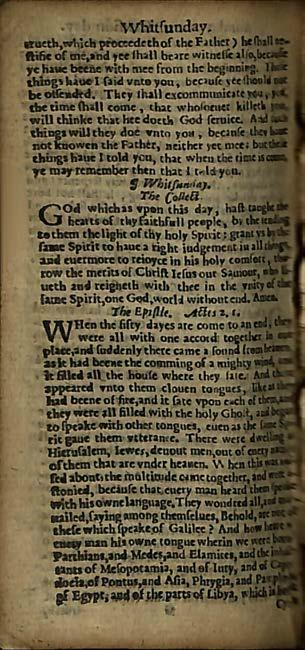 Whitsunday.
trueth, which proceedeth of the Father) he shall te-
stifie of me, and yee shall beare witnesse also, because
ye haue beene with mee from the beginning. These
things haue I said vnto you, because yee should not
be offended. They shall excommunicate you, yea,
the time shall come, that whosoeuer killeth you,
will thinke that hee doeth God seruice. And such
things will they doe vnto you, because they haue
not knowen the Father, neither yet mee: but these
things haue I told you, that when the time is come,
ye may remember then that I told you.
¶ Whitsunday.
The Collect.
GOd which as vpon this day, hast taught the
hearts of thy faithfull people, by the sending
to them the light of thy holy Spirit: grant vs by the
same Spirit to haue a right iudgement in all things,
and euermore to reioyce in his holy comfort, tho-
row the merits of Christ Iesus our Sauiour, who li-
ueth and reigneth with thee in the vnity of the
same Spirit, one God, world without end. Amen.
The Epistle. Actes 2. 1.
WHen the fifty dayes are come to an end, they
were all with one accord together in one
place, and suddenly there came a sound from heauen
as it had beene the comming of a mighty wind, and
it filled all the house where they sate. And there
appeared vnto them clouen tongues, like as they
had beene of fire, and it sate vpon each of them, and
they were all filled with the holy Ghost, and began
to speake with other tongues, euen as the same Spi-
rit gaue them vtterance. There were dwelling at
Hierusalem, Iewes, deuout men, out of euery nation
of them that are vnder heauen. When this was noi-
sed about, the multitude came together, and were a-
stonied, because that euery man heard them speake
with his owne language. They wondred all, and mar-
uailed, saying among themselues, Behold, are not all
these which speake of Galilee? And how heare we
euery man his owne tongue wherin we were borne?
Parthians, and Medes, and Elamites, and the inhabi-
tants of Mesopotamia, and of Iury, and of Cappa-
docia, of Pontus, and Asia, Phrygia, and Pamphylia,
of Egypt, and of the parts of Libya, which is beside